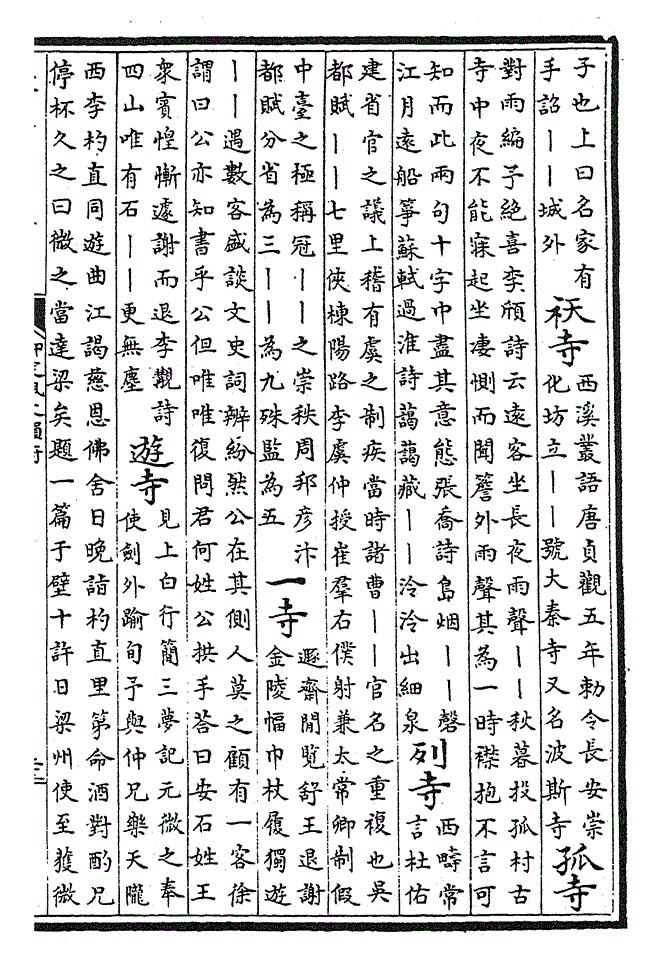 子也上曰名家有
手詔丨丨城外
祆寺
西溪叢語唐貞觀五年勅令長安崇
化坊立丨丨號大秦寺又名波斯寺
孤寺
對雨編予絶喜李頎詩云遠客坐長夜雨聲丨丨秋暮投孤村古
寺中夜不能寐起坐凄惻而聞簷外雨聲其為一時襟抱不言可
知而此兩句十字中盡其意態張喬詩島烟丨丨磬
江月遠船筝蘇軾過淮詩藹藹藏丨丨泠泠出細泉
列寺
西疇常
言杜佑
建省官之議上稽有虞之制疾當時諸曹丨丨官名之重複也吳
都賦丨丨七里俠棟陽路李虞仲授崔羣右僕射兼太常卿制假
中臺之極稱冠丨丨之崇秩周邦彦汴
都賦分省為三丨丨為九殊監為五
一寺
遯齋閒覧舒王退謝
金陵幅巾杖履獨遊
丨丨遇數客盛談文史詞辨紛然公在其側人莫之顧有一客徐
謂曰公亦知書乎公但唯唯復問君何姓公拱手荅曰安石姓王
衆賓惶慚遽謝而退李觀詩
四山唯有石丨丨更無塵
遊寺
見上白行簡三夢記元微之奉
使劍外踰旬予與仲兄樂天隴
西李杓直同遊曲江謁慈恩佛舍日晚詣杓直里第命酒對酌兄
停杯久之曰微之當達梁矣題一篇于壁十許日梁州使至獲微